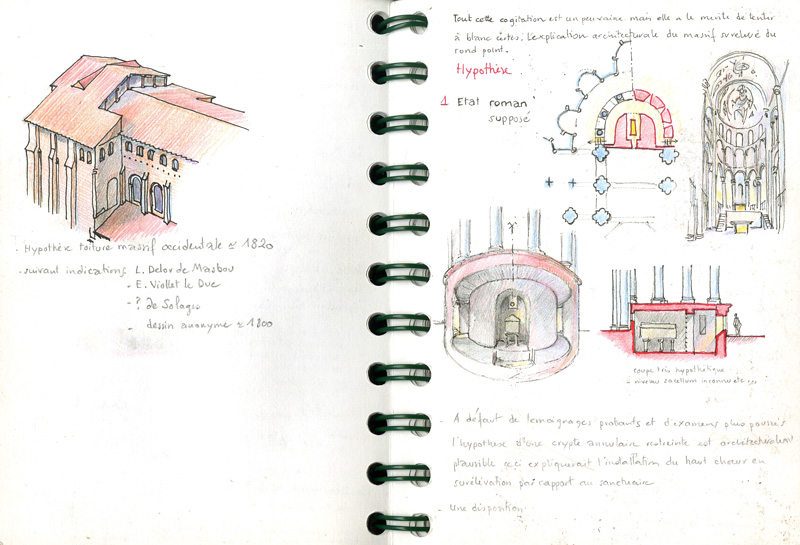 - Hypothèse toiture massif occidentale ≃ 1820
- suivant indications L. Delor de Masbou
- E. Viollet le Duc
- ? de Solages
- dessin anonyme ≃ 1800
Tout cette cogitation est un peu vaine mais elle a le mérite de tenter
à blanc certes, l'explication architecturale du massif surelevé du
rond point.
Hypothèse
1 Etat roman
supposé
coupe très hypothétique
- niveau sacellum inconnu etc...
- A défaut de témoignages probants et d'examens plus poussés
l'hypothèse d'une crypte annulaire restreinte est architecturalement
plausible qui expliquerait l'installation du haut chœur en
surélévation par rapport au sanctuaire
- une disposition